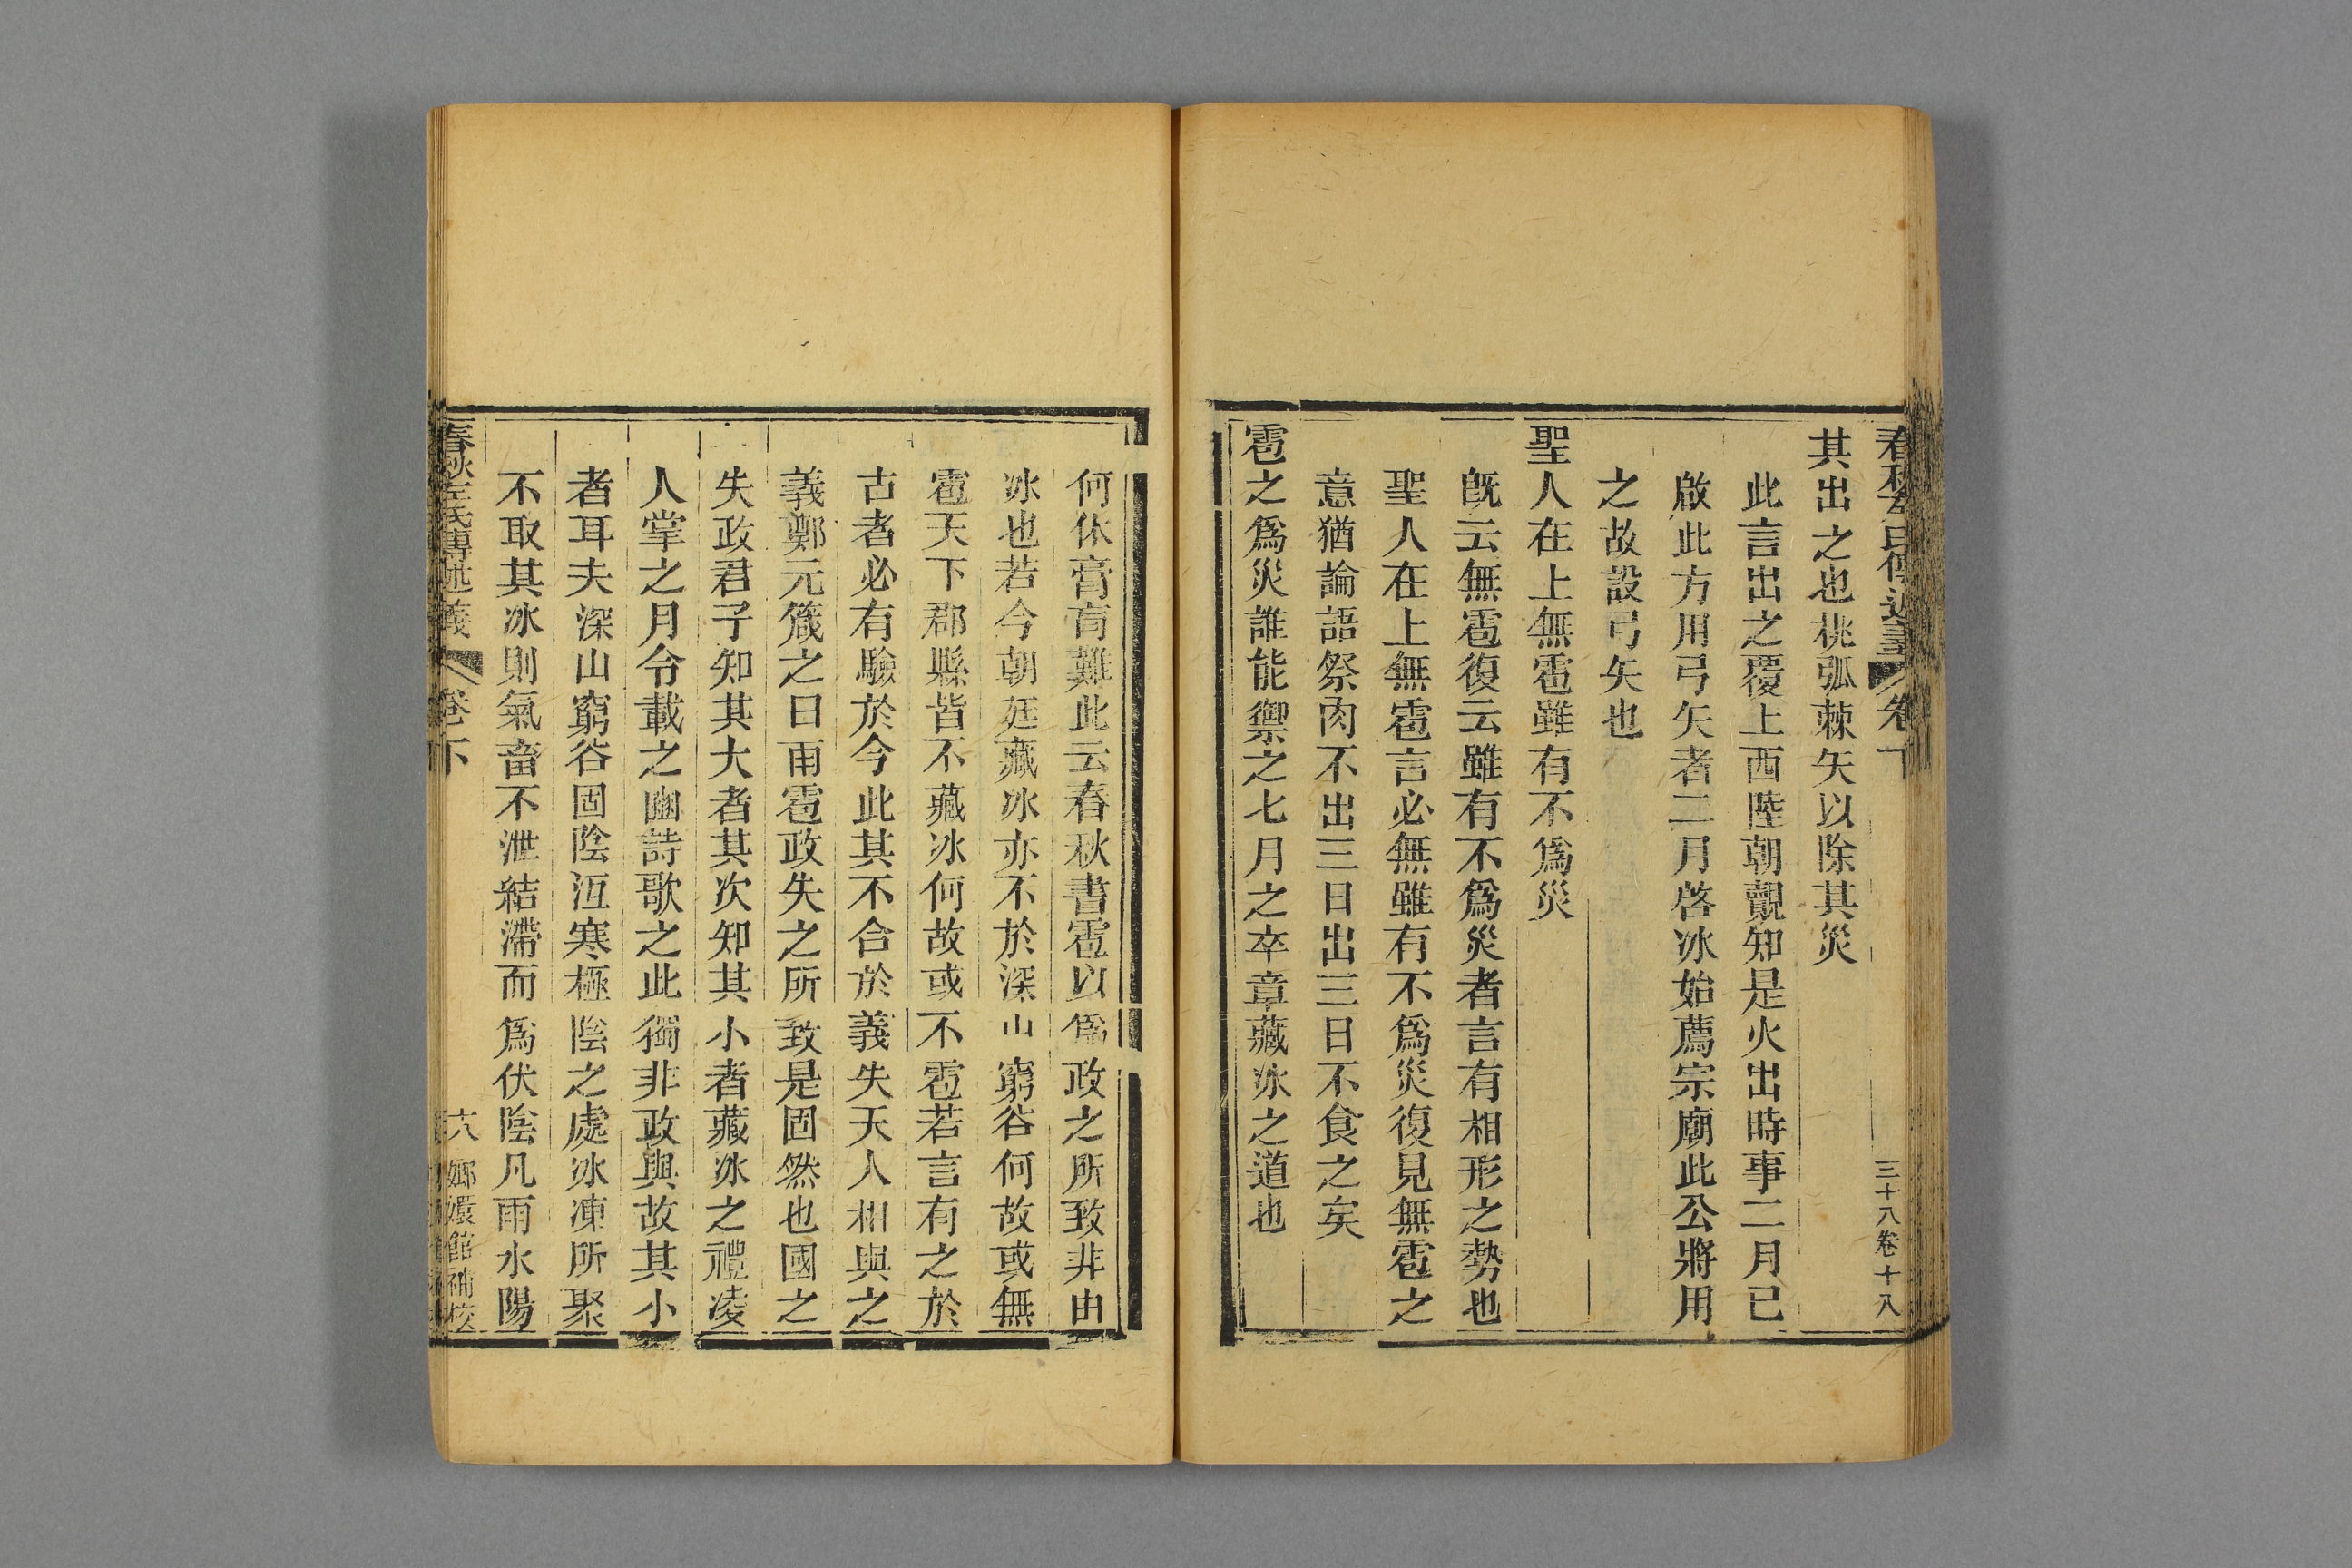 春秋左氏傳述義 卷下 三十八卷十八
其出之也桃弧棘矢以除其災
此言出之覆上西陸朝覿知是火出時事二月已
啟此方用弓矢者二月啓冰始薦宗廟此公將用
之故設弓矢也
聖人在上無雹雖有不爲災
旣云無雹復云雖有不爲災者言有相形之勢也
聖人在上無雹言必無雖有不爲災復見無雹之
意猶論語祭肉不出三日出三日不食之矣
雹之爲災誰能禦之七月之卒章藏冰之道也
何休膏肓難此云春秋書雹以爲政之所致非由
冰也若今朝廷藏冰亦不於深山窮谷何故或無
雹天下郡縣皆不藏冰何故或不雹若言有之於
古者必有驗於今此其不合於義失天人相與之
義鄭元箴之曰雨雹政失之所致是固然也國之
失政君子知其大者其次知其小者藏冰之禮凌
人掌之月令載之豳詩歌之此獨非政與故其小
者耳夫深山窮谷固陰沍寒極陰之處冰凍所聚
不取其冰則氣畜不泄結滯而爲伏陰凡雨水陽
春秋左氏傳述義 卷下 六 嫏嬛館補校